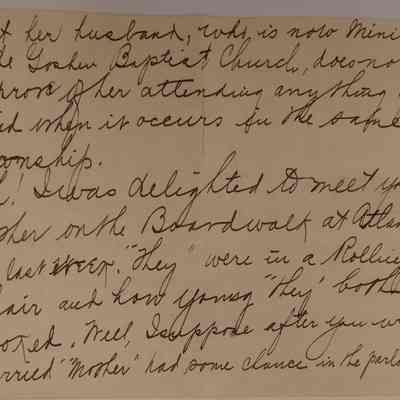 t her husband, who is now Mini
he Goshen Baptist Church, does no
prove of her attending anything
d when it occurs in the same
onship.
! I was delighted to meet y
her on the Boardwalk at Atlan
last week. "They" were in a Rollin
air and how young "they" both
oked. Well, I suppose after you w
rried "Mother" had some chance in the parlo